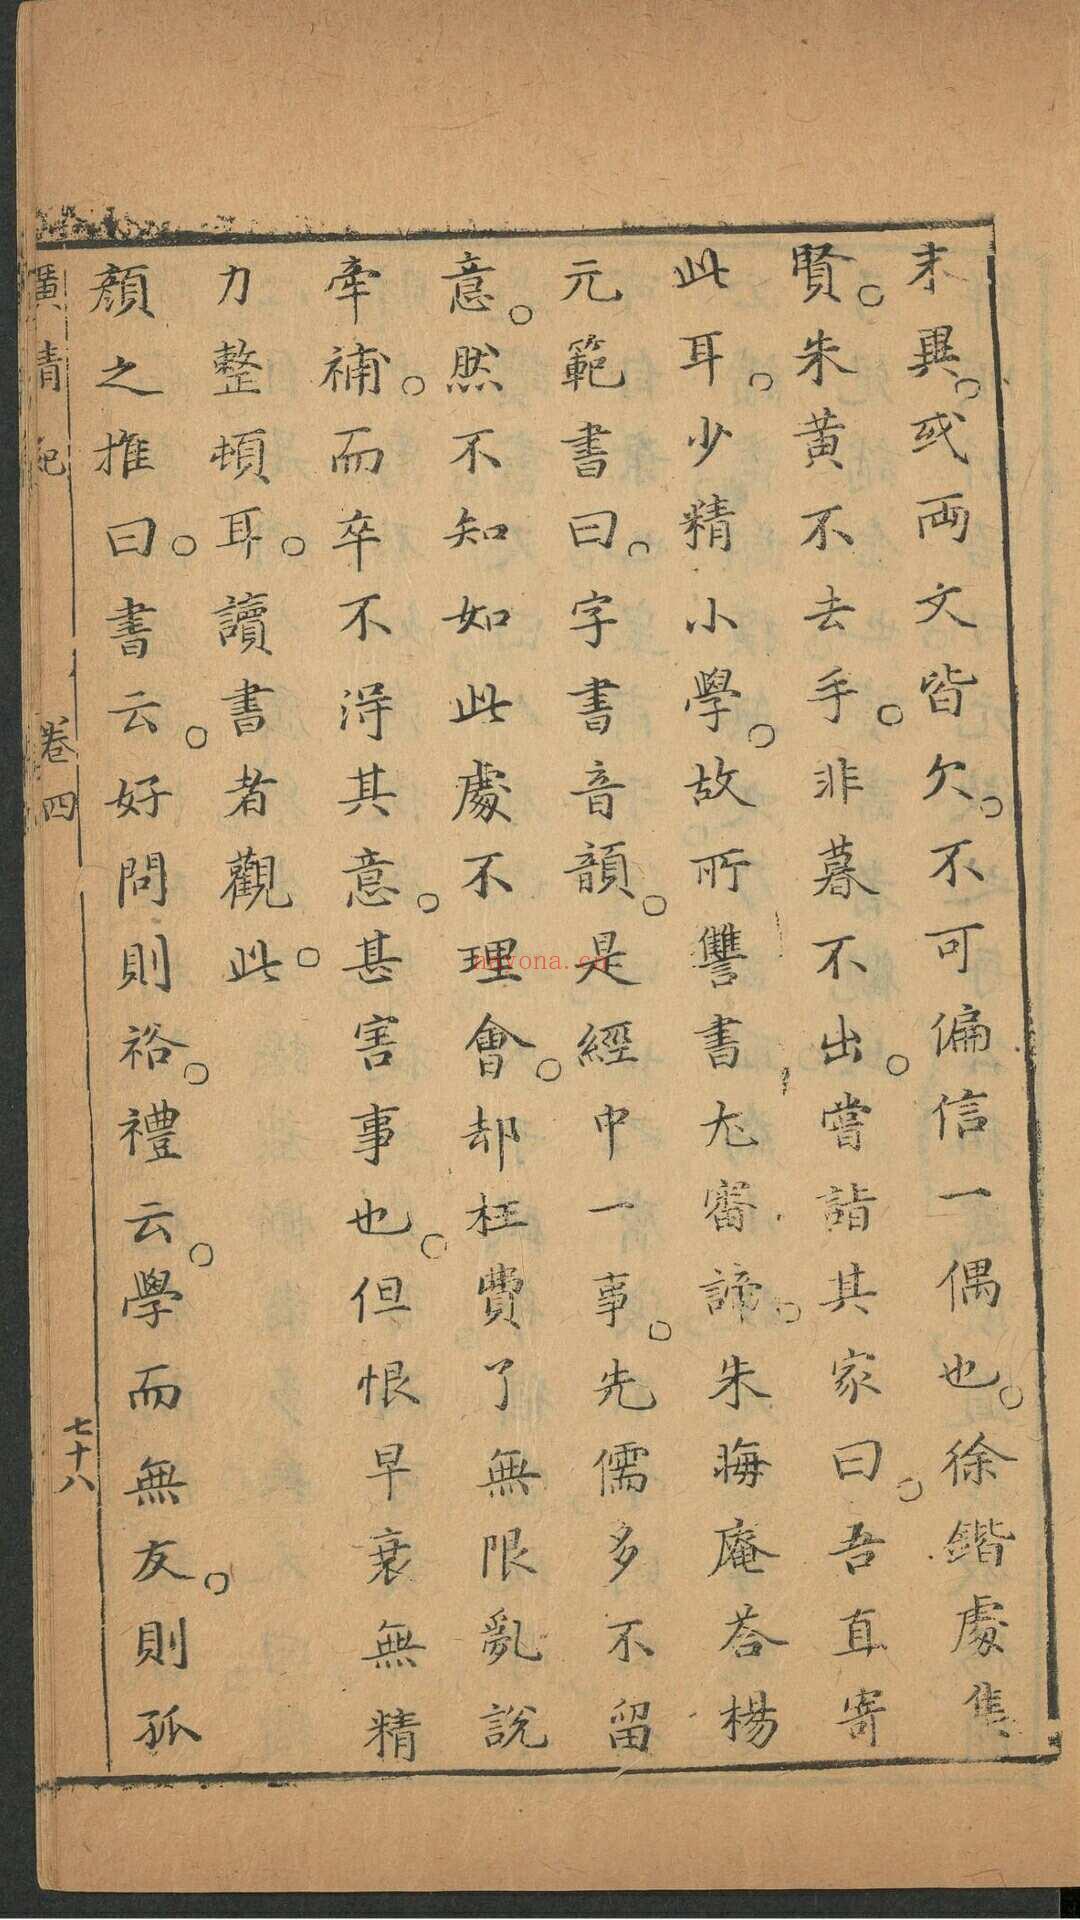 末異。或兩文皆欠。不可偏信一偶也。徐鍇處集
賢。朱黃不去手。非暮不出。嘗詣其家曰。吾直寄
此耳。少精小學。故所讐書尤審諦。朱晦庵荅楊
元範書曰。字書音韻。是經中一事。先儒多不留
意。然不知如此處不理會。却枉費了無限亂說
牽補。而卒不淂其意。甚害事也。但恨早衰無精
力整頓耳。讀書者觀此。
顏之推曰。書云。好問則裕。禮云。學而無友。則孤
廣清紀 卷四 七十八
nayona.cn